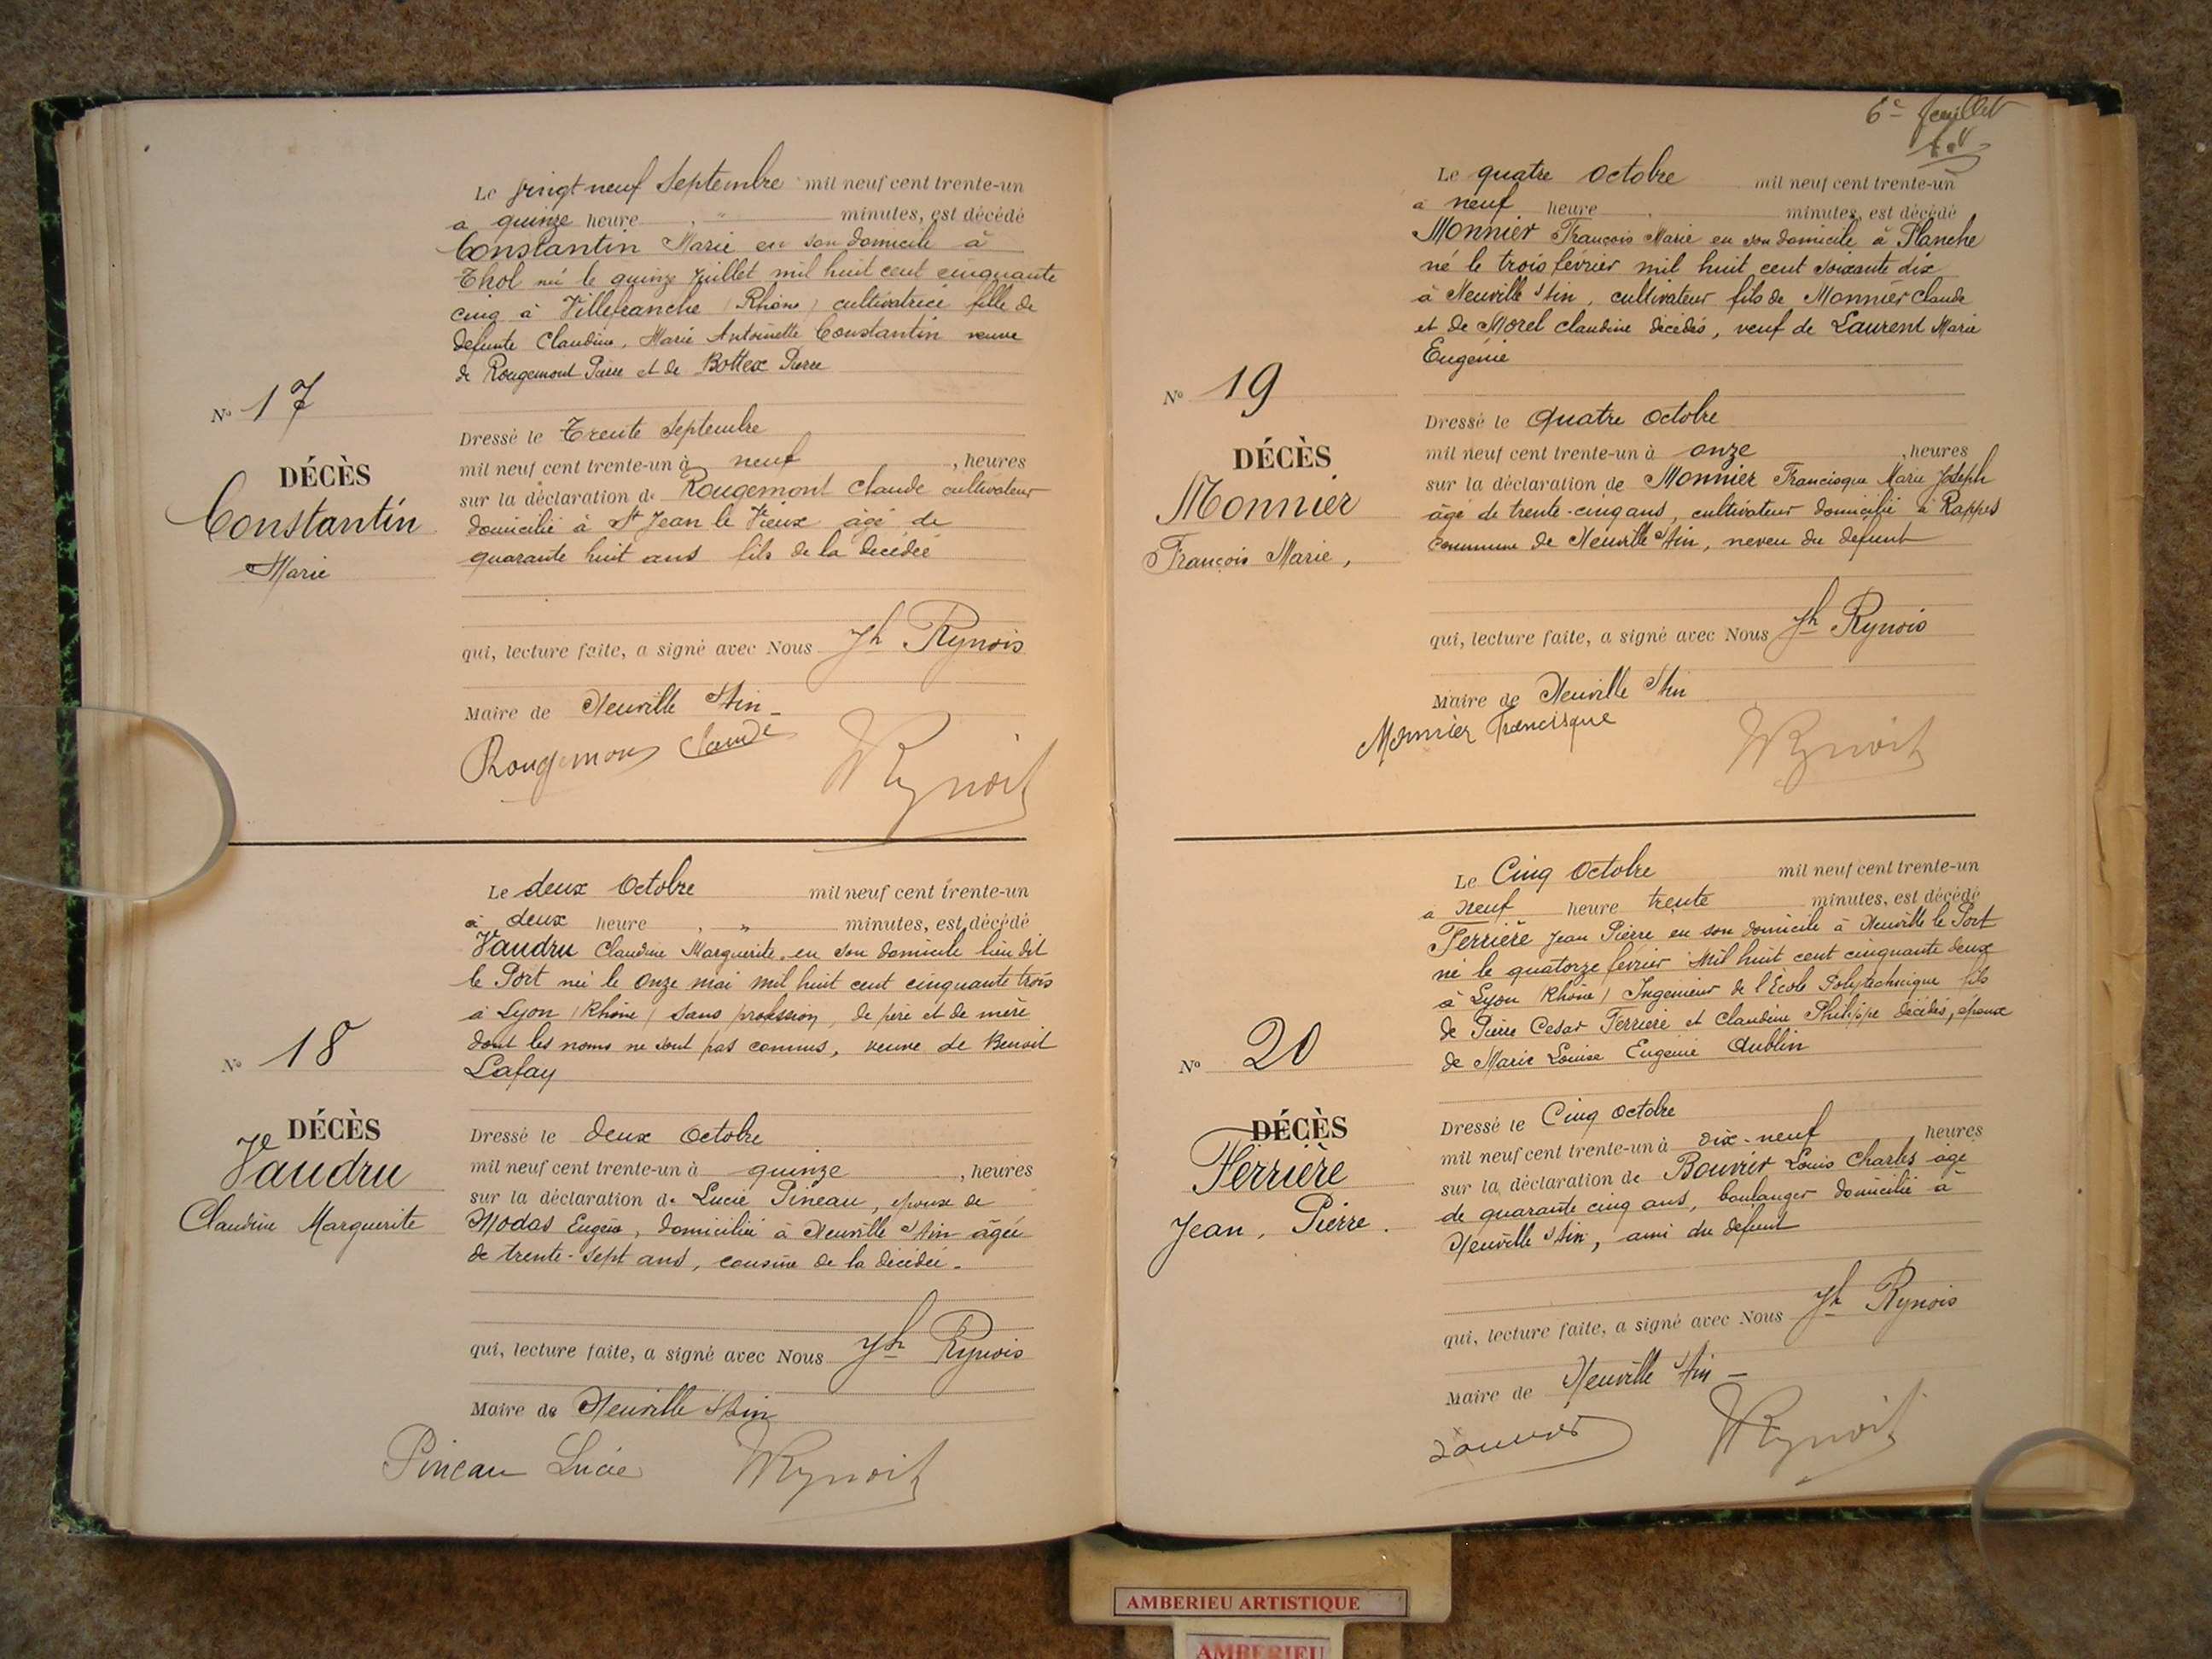 Le vingt neuf Septembre mil neuf cent trente-un
a quinze heure " minutes, est décédé
Constantin Marie en son domicile à
Thol né le quinze Juillet mil huit cent cinquante
cinq à Villefranche (Rhône) cultivatrice fille de
defunte Claudine, Marie Antoinette Constantin veuve
de Rougemont Pierre et de Bottex Pierre
N° 17
DÉCÈS
Constantin
Marie
Dressé le Trente Septembre
mil neuf cent trente-un à neuf , heures
sur la déclaration de Rougemont Claude cultivateur
domicilié à St Jean le Vieux âgé de
quarante huit ans fils de la décédée
qui, lecture faite, a signé avec Nous Jh Rynois
Maire de Neuville s/Ain
Rougemont Claude Rynois
Le deux Octobre mil neuf cent trente-un
à deux heure , " minutes, est décédé
Vaudru Claudine Marguerite, en son domicile lieu dit
le Port née le Onze mai mil huit cent cinquante trois
à Lyon (Rhône) sans profession, de père et de mère
dont les noms ne sont pas connus, veuve de Benoit
Lafay
N° 18
DÉCÈS
Vaudru
Claudine Marguerite
Dressé le deux Octobre
mil neuf cent trente-un à quinze , heures
sur la déclaration de Lucie Pineau, épouse de
domiciliée à Neuville s/Ain âgée
de trente-sept ans, cousine de la décédée.
qui, lecture faite, a signé avec Nous Jh Rynois
Maire de Neuville s/Ain
Pineau Lucie Rynois
6e feuillet
Le quatre Octobre mil neuf cent trente-un
à neuf heure minutes, est décédé
Monnier François Marie en son domicile à Planche
né le trois février mil huit cent soixante dix
à Neuville s/Ain, cultivateur fils de Monnier Claude
et de Morel Claudine décédés, veuf de Laurent Marie
Eugénie
N° 19
DÉCÈS
Monnier
François Marie,
Dressé le Quatre Octobre
mil neuf cent trente-un à onze , heures
sur la déclaration de Monnier Francisque Marie Joseph
âgé de trente-cinq ans, cultivateur domicilié à Rappes
Commune de Neuville s/Ain, neveu du defunt
qui, lecture faite, a signé avec Nous Jh Rynois
Maire de Neuville s/Ain
Monnier Francisque Rynois
Le Cinq Octobre mil neuf cent trente-un
a neuf heure trente minutes, est décédé
Ferrière Jean Pierre en son domicile à Neuville le Port
né le quatorze février mil huit cent cinquante deux
à Lyon (Rhône) Ingenieur de l'École Polytechnique fils
de Pierre Cesar Ferrière et Claudine Philippe décédés, époux
de Marie Louise Eugenie Aublin
N° 20
DÉCÈS
Ferrière
Jean, Pierre.
Dressé le Cinq Octobre
mil neuf cent trente-un à dix-neuf heures
sur la déclaration de Bouvier Louis Charles âgé
de quarante cinq ans, boulanger domicilié à
Neuville s/Ain, ami du defunt
qui, lecture faite, a signé avec Nous Jh Rynois
Maire de Neuville s/Ain
Bouvier Rynois
AMBERIEU ARTISTIQUE
AMBERIEU